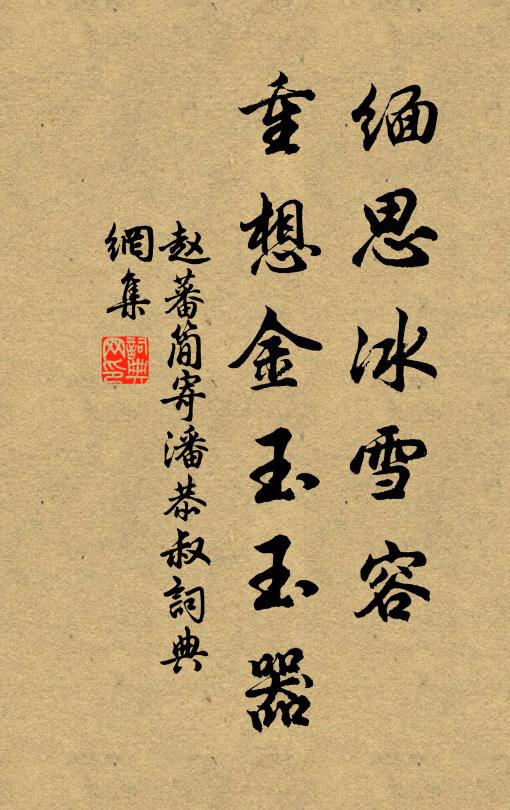 缅思冰雪容
重想金玉玉器
赵蕃简寄潘恭叔詞典
網集
詞典
网印